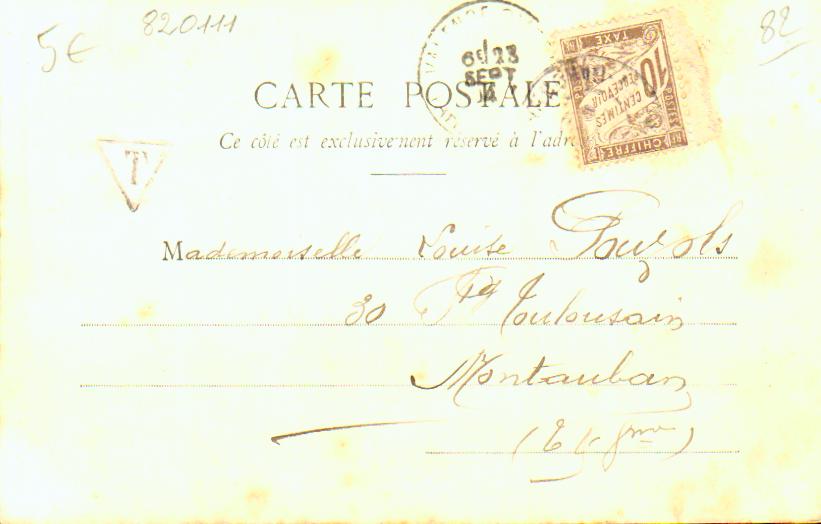 5€
820111
82
6E/23
SEPT
CHIFFRE
10
CENTIMES
A PERCEVOIR
TAXE
POSTES
CARTE POSTALE
Ce côté est exclusivement réservé à l'adre
T
Mademoiselle Louise
30 Fg Toulousain
Montauban